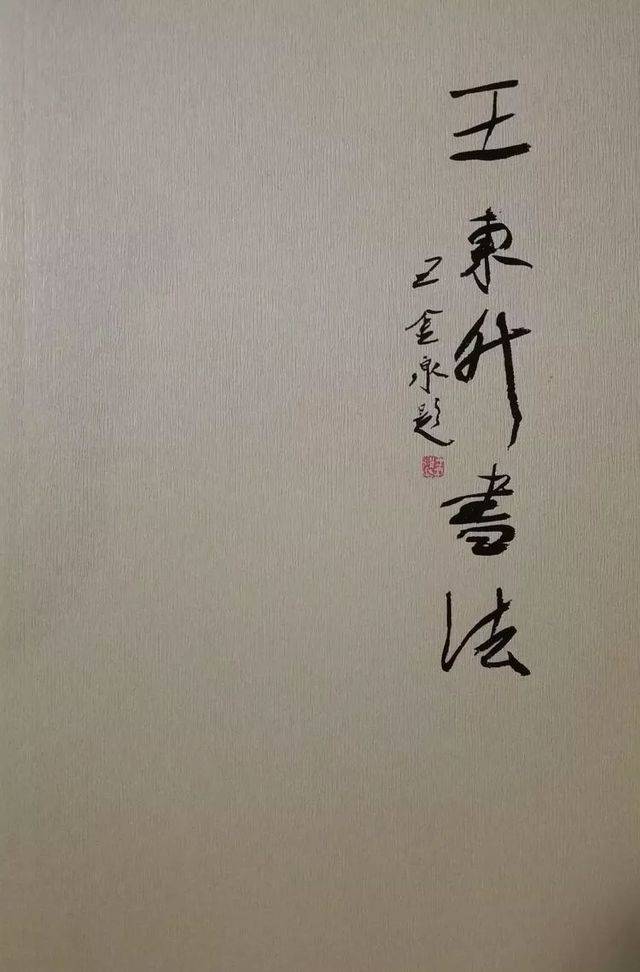 王東升書法
王金泉題